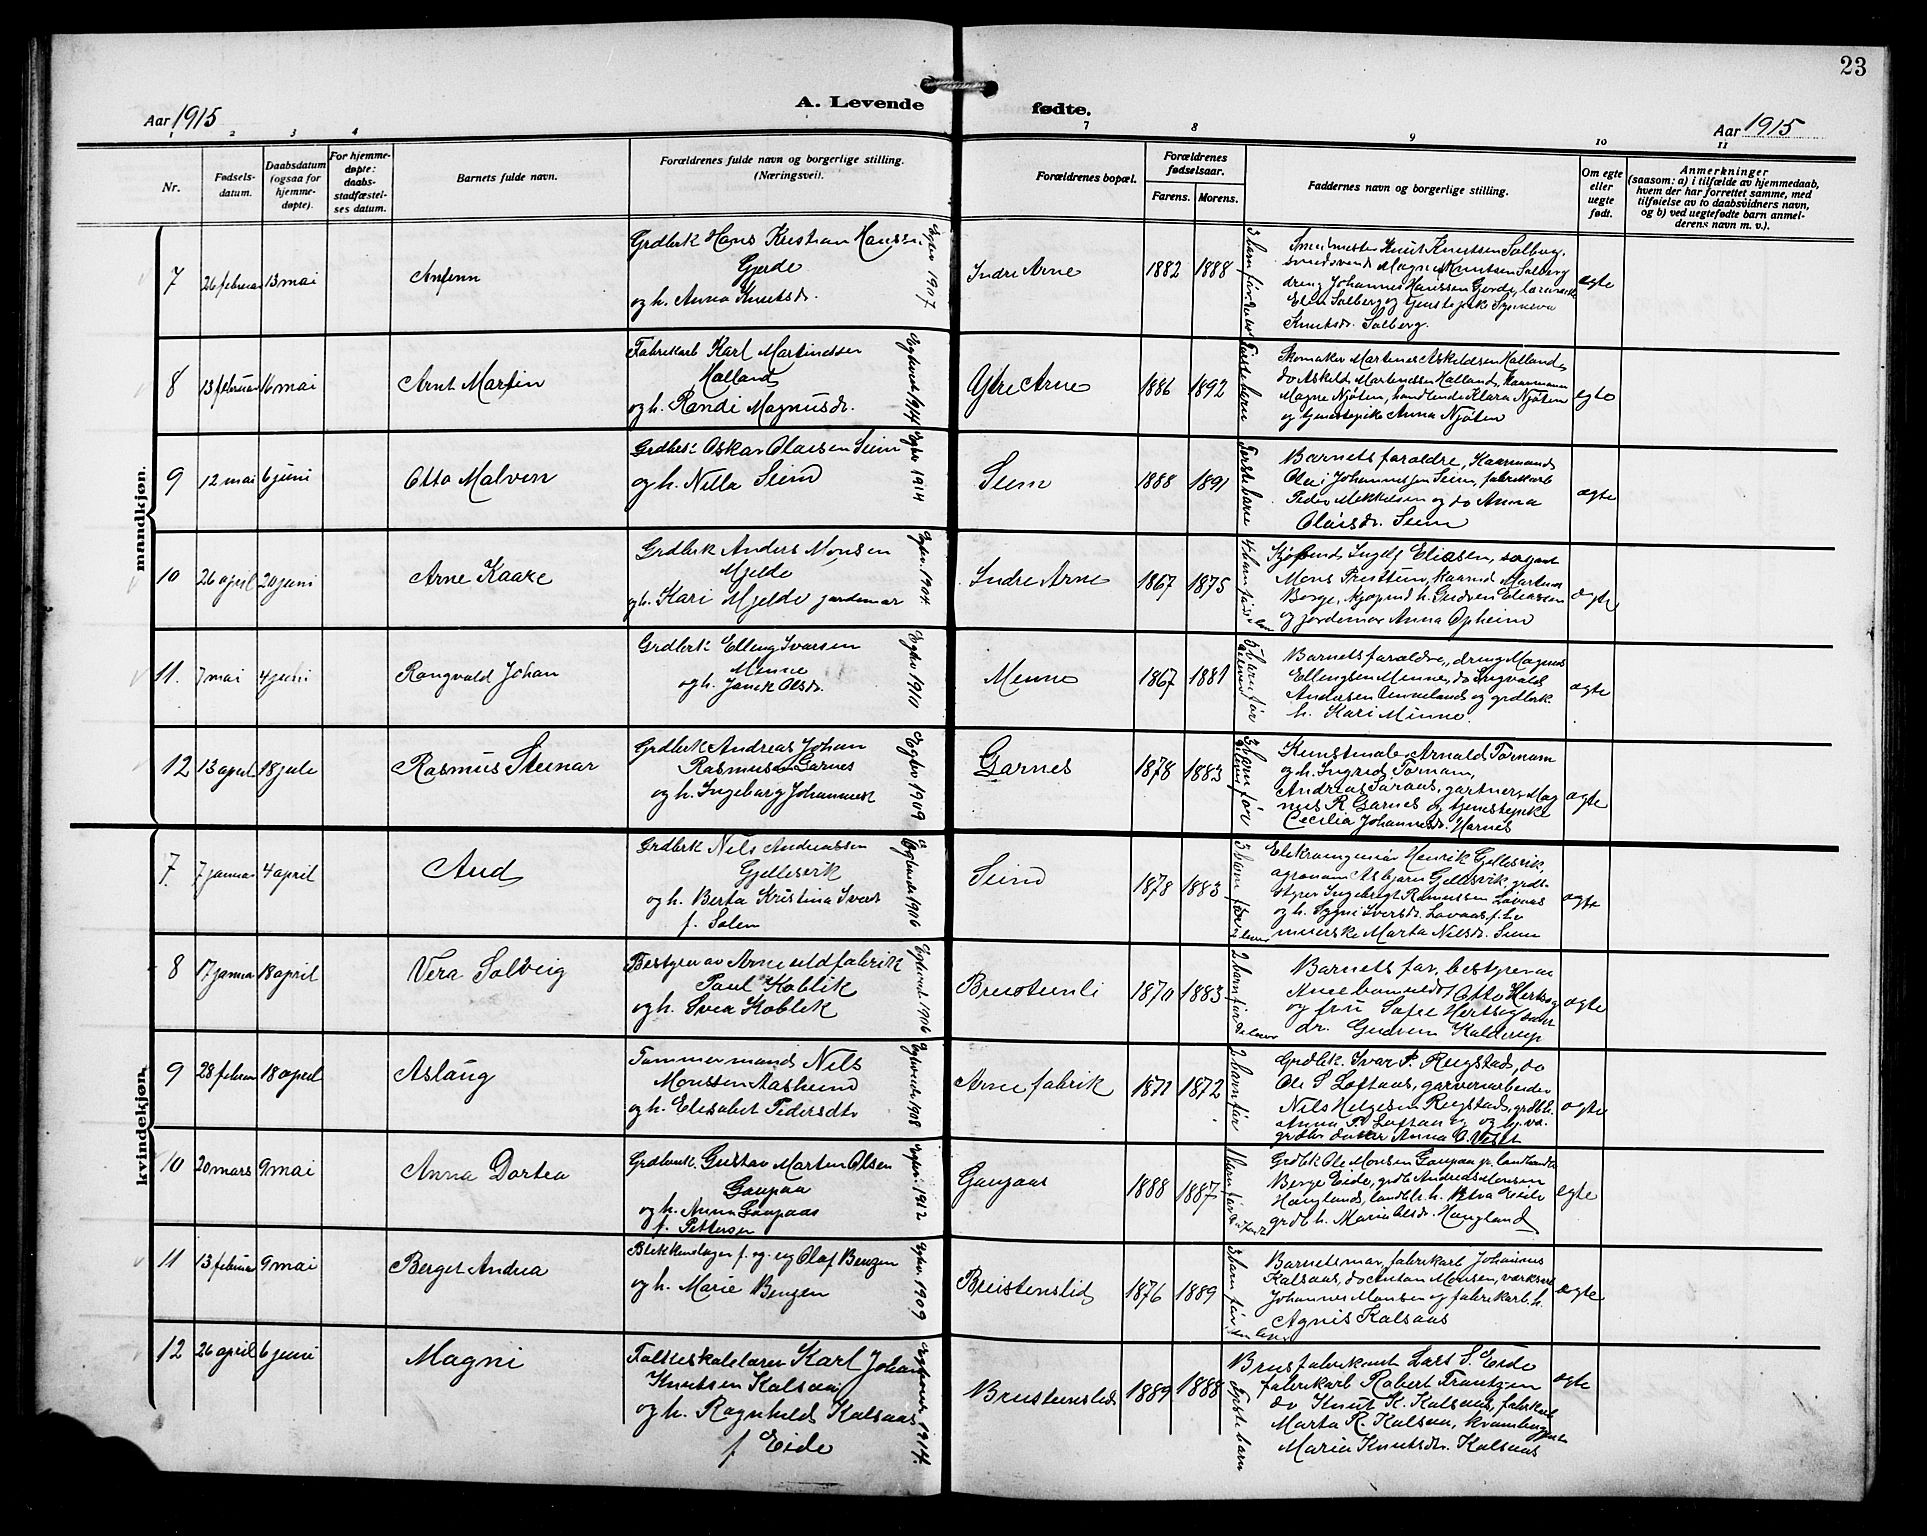 23
A. Levende fødte.
Aar 1915
Aar 1915
1 2 3 4 7 8 9 10 11
Nr.
Fødsels-
datum.
Daabsdatum
(ogsaa for
hjemme-
døpte).
For hjemme-
døpte:
daabs-
stadfæstel-
ses datum.
Barnets fulde navn.
Forældrenes fulde navn og borgerlige stilling.
(Næringsvei).
Forældrenes bopæl.
Forældrenes
fødselsaar.
Farens. Morens.
Faddernes navn og borgerlige stilling.
Om egte
eller
uegte
født.
Anmerkninger
(saasom: a) i tilfælde av hjemmedaab,
hvem der har forrettet samme, med
tilføielse av to daabsvidners navn,
og b) ved uegtefødte barn anmel-
derens navn m. v.).
mandkjøn.
7 26 februar 13 mai
Anfinn
Grdbrk Hans Kristian Hansen
Gjerde
og h. Anna Knutsdr.
1907
Indre Arne 1882 1888
Smedmester Knut Knutsen Solberg,
smedsvend Magne Knutsen Solberg
dreng Johannes Hanssen Gjerde,
Solberg og tjenstepike Synneva
Knutsdr. Solberg.
ægte
8 13 februar 16 mai
Arnt Martin
Fabrikarb Karl Martinussen
Halland
og h. Randi Magnusdr.
1914
Ytre Arne 1886 1892
Første barn
Skomaker Martines Askeldsen Halland,
do Askeld Martinussen Halland,
Magne Njøten, handlende Klara Njøten
og tjenestepike Anna Njøten
egte
9 12 mai 6 juni
Otto Malven
Grdbr: Oskar Olaisen Seim
og h. Nilla Seim
1914
Seim 1888 1891
Første barn
Barnets foraldre, Kaarmand
Olai Johannessen Seim, fabrikarb
Peder Mikkelsen og do Anna
Olaisdr. Seim
ægte
10 26 april 20 juni
Arne Kaare
Grdbrk Anders Monsen
Mjelde
og h. Kari Mjelde jordemor
1904
Indre Arne 1867 1875
4 barn før
Kjøbmd Ingolf Eliasen,
Mons
Borge, kjøpmd h. Gudrun Eliassen
og jordemor Anna Opheim
ægte
11. 7 mai 4 juni
Rangvald Johan
Grdbrk: Elling Ivarsen
Minne
og h. Janik Olsdr.
1910
Minne 1867 1881
Barnets foraldre, dreng Magnus
Ellingsen Minne, do Sigvald
Andersen Unneland og grdbrk
h. Kari Minne.
ægte
12 13 april 18 jule
Rasmus Steinar
Grdbrk Andreas Johan
Rasmussen Garnes
og h. Ingeborg Johannesdr
1909
Garnes 1878 1883
3 barn før
Kunstmaler Arnold Tornam
og h. Ingrid Tornam,
gartner, Mag
nus R Garnes og tjenestepike
Cecilia Johannesdr. Harnes
ægte
kvindekjøn
7. 7 januar 4 april
Aud
Grdbrk Nils Andreassen
Gjellesvik
og h. Berta Kristina Iversdr
f. Solem
1906
Seim 1878 1883
3 barn før
Elekroingeniør Henrik Gjellesvik,
agronom Asbjørn Gjellesvik, grdb.
styrer Ingebrigt Rasmussen Lövaas
og h. Iversdr. Lövaas f.
Marta Nilsdr. Seim
ægte
8 17 januar 18 april
Vera Solveig
Bestyrer av Arne uldfabrik
Paul Koblik
og h. Svea Koblik
1906
Breistenli 1870 1883
2 barn før
Barnets far, bestyrer av
Otto Hertzog
og fru Sofie Hertzog
dr. Gudrun Kalderup
ægte
9 28 februar 18 april
Aslaug
Tømmermand Nils
Monssen Aaslund
og h. Elisabet Pedersdtr
1908
Arne fabrik 1872
2 barn før
Grdbrk. Ivar P. Rugstad, do
Ole S Loftaas, garverarbeider
Nils Helgesen Rugstad, grdb h.
Anna P. Loftaas og
Anna O.
ægte
10 20 mars 9 mai
Anna Dortea
Grdbruk. Gustav Marten Olsen
Gaupaas
og h. Anna Gaupaas
f. Pettersen
1912
Gaupaas 1888 1887
1 barn før
Grdbk Ole Monsen Gaupaas
Berge Eide, grdb Andreas Monsen
Haugland, h. Eide
grdb h. Marie Olsdr. Haugland
egte
11 13 februar 9 mai
Berget Andrea
Blikkenslager Olaf Bengen
og h. Marie Bengen
1909
Breistenslid 1876 1889
3 barn før
Barnets mor, fabrikarb Johannes
Kalsaas, do Anton Monsen,
Johannes Monsen og fabrikarb. h.
Agnis Kalsaas
ægte
12 26 april 6 juni
Magni
Folkeskolelærer Karl Johan
Knutsen Kalsaas
og h. Ragnhild Kalsaas
f Eide
1914.
Breistenslid 1889 1888
Første barn
Brusfabrikant Lars S. Eide
fabrikarb Robert Frantzen
do Knut K. Kalsaas, fabrikarb
Marta R. Kalsaas,
Maria Knutsdr. Kalsaas
ægte